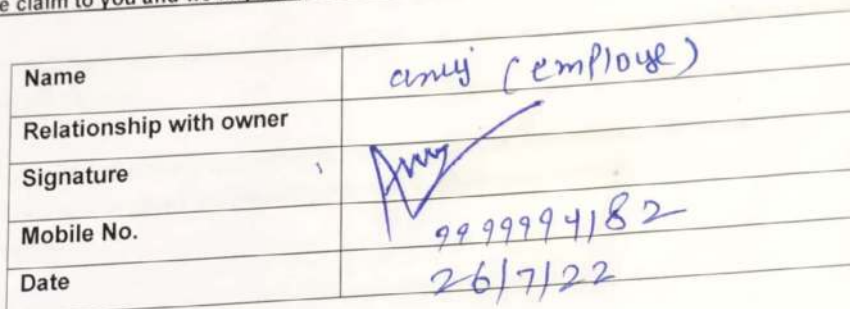 e claim to you and
Name anuj (employe)
Relationship with owner
Signature Anuj
Mobile No. 9999994182
Date 26/7/22